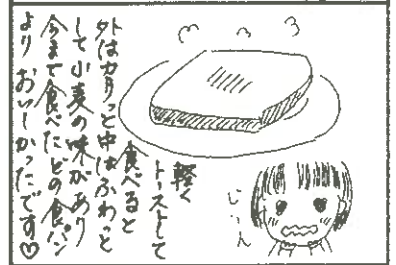 軽く
トーストして
食べると
外はカリっと中はふわっと
して小麦の味があり
今まで食べたどの食パン
より おいしかったです♡
じーん